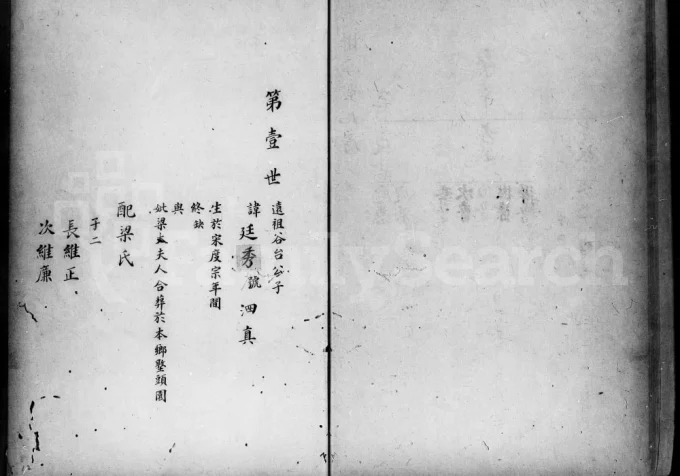 第壹世
遠祖谷台公子
諱廷秀號泗真
生於宋度宗年間
終缺
與
妣梁夫人合葬於本鄉墪頭園
配梁氏
子二
長維正
次維廉
FamilySearch